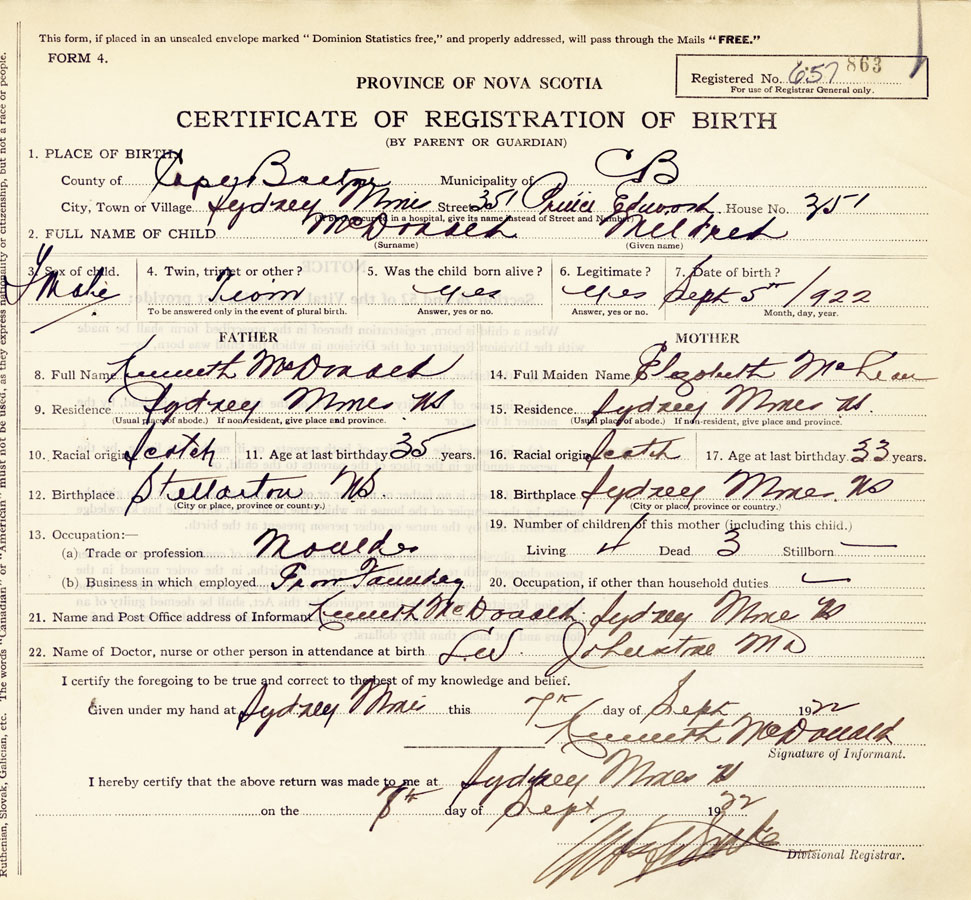 This form, if placed in an unsealed envelope marked "Dominion Statistics free," and properly addressed, will pass through the Mails "FREE."
FORM 4.
Registered No. 657 863
For use of Registrar General only.
PROVINCE OF NOVA SCOTIA
CERTIFICATE OF REGISTRATION OF BIRTH
(BY PARENT OR GUARDIAN)
1. PLACE OF BIRTH
County of Cape Breton Municipality of CB
City, Town or Village Sydney Mines Street 351 Prince Edward House No. 351
(If birth occurred in a hospital, give its name instead of Street and Number)
2. FULL NAME OF CHILD McDonald Mildred
(Surname) (Given name)
3. Sex of child. 4. Twin, triplet or other? 5. Was the child born alive? 6. Legitimate? 7. Date of birth?
Twin Yes Yes Sept 5th 1922
To be answered only in the event of plural birth. Answer, yes or no. Answer, yes or no. Month, day, year.
FATHER MOTHER
8. Full Name Kenneth McDonald 14. Full Maiden Name Elizabeth McLean
9. Residence Sydney Mines NS 15. Residence Sydney Mines NS.
(Usual place of abode.) If non-resident, give place and province. (Usual place of abode.) If non-resident, give place and province.
10. Racial origin Scotch 11. Age at last birthday 35 years. 16. Racial origin Scotch 17. Age at last birthday 33 years.
12. Birthplace Stellarton NS. 18. Birthplace Sydney Mines NS
(City or place, province or country.) (City or place, province or country.)
13. Occupation:— 19. Number of children of this mother (including this child.)
(a) Trade or profession Moulder Living 4 Dead 3 Stillborn —
(b) Business in which employed Foundry 20. Occupation, if other than household duties —
21. Name and Post Office address of Informant Kenneth McDonald Sydney Mines NS
22. Name of Doctor, nurse or other person in attendance at birth Johnstone MD
I certify the foregoing to be true and correct to the best of my knowledge and belief.
Given under my hand at Sydney Mines this 7th day of Sept 1922
Kenneth McDonald
Signature of Informant.
I hereby certify that the above return was made to me at Sydney Mines NS
on the 8th day of Sept 1922
Divisional Registrar.
Ruthenian, Slovak, Galician, etc. The words "Canadian" or "American" must not be used, as they express nationality or citizenship, but not a race or people.